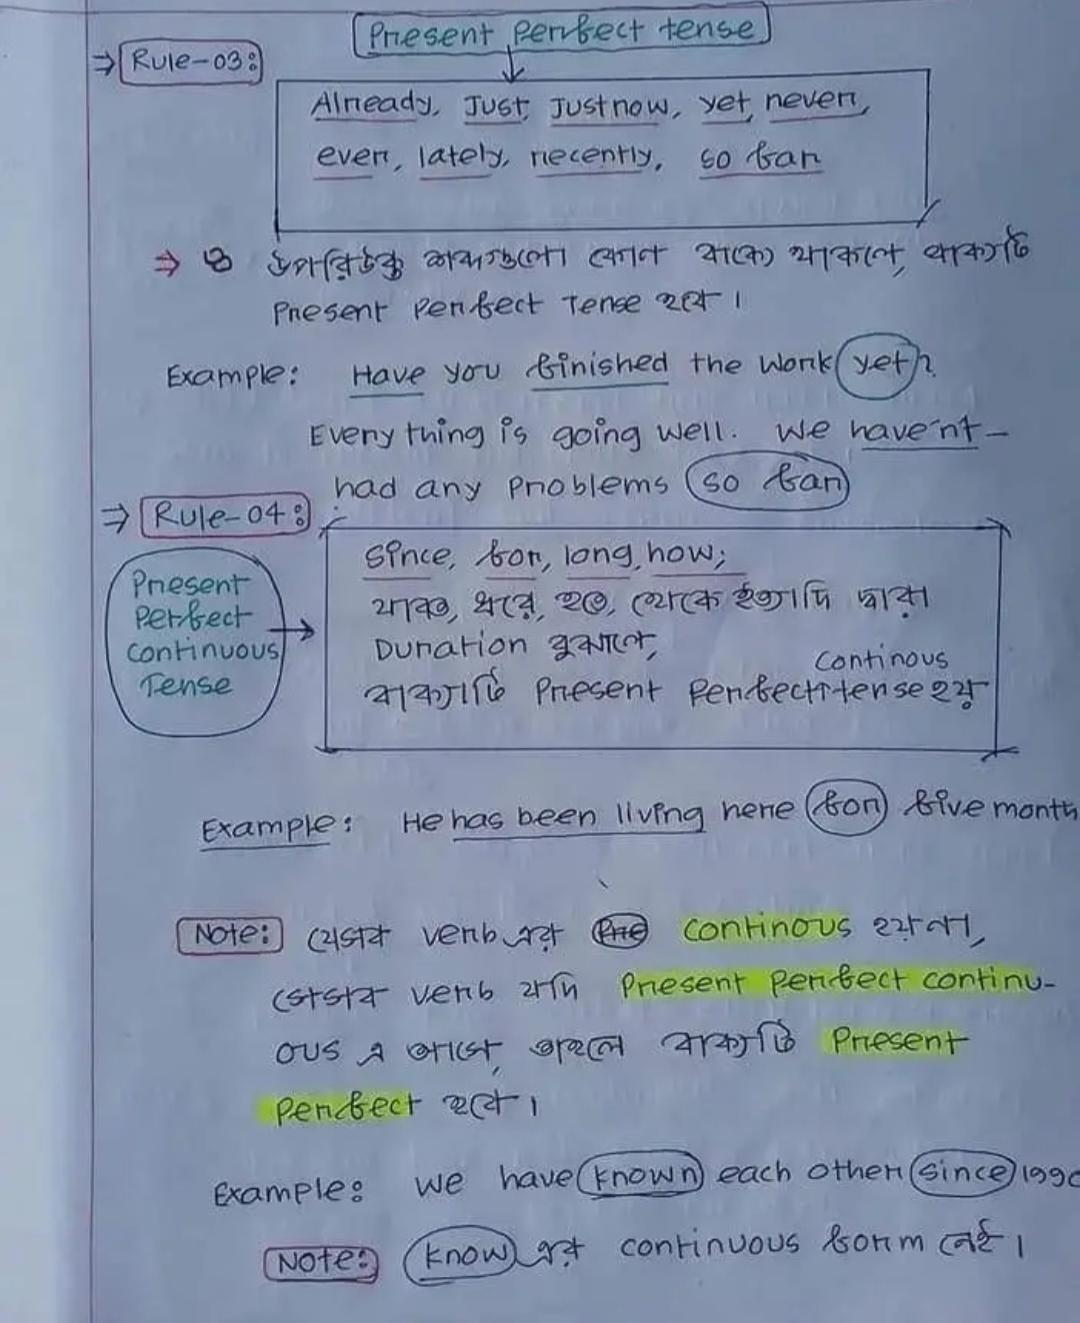 Present perfect tense
⇒ Rule-03:
Already, Just, Justnow, yet, never,
ever, lately, recently, so far
⇒ উপরিউক্ত শব্দগুলো কোন বাক্যে থাকলে, বাক্যটি
Present perfect Tense হবে।
Example: Have you finished the work yet?
Every thing is going well. We have'nt-
had any problems so far
⇒ Rule-04:
Since, for, long, how;
যাবত, ধরে, হতে, থেকে ইত্যাদি দ্বারা
Duration বুঝালে,
continous
বাক্যটি Present perfect tense হয়
Present
Perfect
continuous
Tense
Example: He has been living here for five month
Note: যেসব verb এর continous হয়না,
সেসব verb যদি Present perfect continu-
ous এ আসে, তাহলে বাক্যটি Present
perfect হবে।
Example: We have known each other since 1990
Note: know এর continuous form নেই।